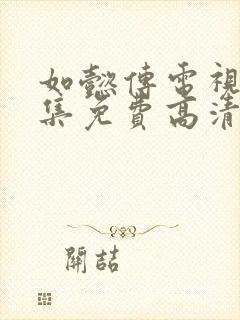 如懿傳電視
集免費高清
開喆